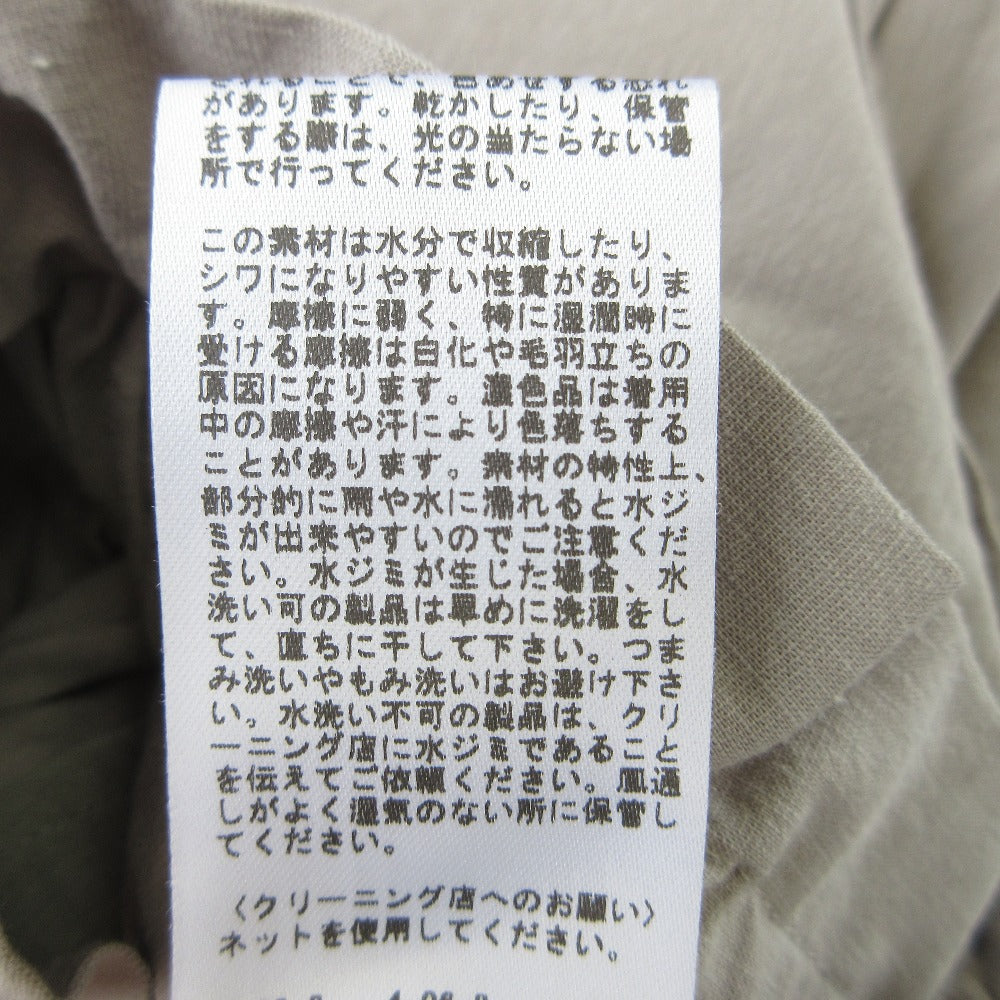 があります。乾かしたり、保管
をする際は、光の当たらない場
所で行ってください。
この素材は水分で収縮したり、
シワになりやすい性質がありま
す。摩擦に弱く、特に湿潤時に
受ける摩擦は白化や毛羽立ちの
原因になります。濃色品は着用
中の摩擦や汗により色落ちする
ことがあります。素材の特性上、
部分的に雨や水に濡れると水ジ
ミが出来やすいのでご注意くだ
さい。水ジミが生じた場合、水
洗い可の製品は早めに洗濯をし
て、直ちに干して下さい。つま
み洗いやもみ洗いはお避け下さ
い。水洗い不可の製品は、クリ
ーニング店に水ジミであること
を伝えてご依頼ください。風通
しがよく湿気のない所に保管し
てください。
〈クリーニング店へのお願い〉
ネットを使用してください。